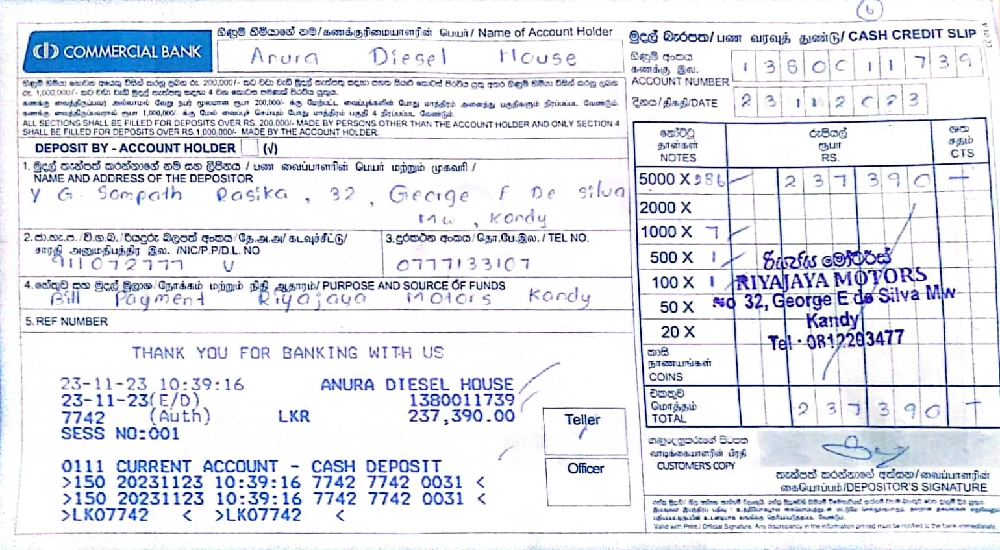 6
COMMERCIAL BANK
ගිණුම් හිමියාගේ නම/கணக்குரிமையாளரின் பெயர்/ Name of Account Holder
Anura Diesel House
මුදල් බැරපත/பண வரவுத் துண்டு/CASH CREDIT SLIP
ගිණුම් අංකය
கணக்கு இல.
ACCOUNT NUMBER
1380011739
දිනය/திகதி/DATE
23112023
ALL SECTIONS SHALL BE FILLED FOR DEPOSITS OVER RS. 200,000/- MADE BY PERSONS OTHER THAN THE ACCOUNT HOLDER AND ONLY SECTION 4
SHALL BE FILLED FOR DEPOSITS OVER RS.1,000,000/- MADE BY THE ACCOUNT HOLDER.
DEPOSIT BY - ACCOUNT HOLDER (√)
1. මුදල් තැන්පත් කරන්නාගේ නම සහ ලිපිනය / பண வைப்பாளரின் பெயர் மற்றும் முகவரி /
NAME AND ADDRESS OF THE DEPOSITOR
Y G. Sampath Rasika, 32, George E De Silva
Mw, Kandy
2. ජා.හැ.ප./වි.ග.බ./රියදුරු බලපත් අංකය/தே.அ.அ/கடவுச்சீட்டு/
சாரதி அனுமதிபத்திர இல. /NIC/P.P/D.L. NO
911072777 V
3. දුරකථන අංකය/தொ.பே.இல./ TEL NO.
0777133107
4. හේතුව සහ මුදල් මූලාශ්‍ර/நோக்கம் மற்றும் நிதி ஆதாரம்/ PURPOSE AND SOURCE OF FUNDS
Bill Payment Riyajaya Motors Kandy
5. REF NUMBER
THANK YOU FOR BANKING WITH US
23-11-23 10:39:16 ANURA DIESEL HOUSE
23-11-23(E/D) 1380011739
7742 (Auth) LKR 237,390.00
SESS NO:001
0111 CURRENT ACCOUNT - CASH DEPOSIT
>150 20231123 10:39:16 7742 7742 0031 <
>150 20231123 10:39:16 7742 7742 0031 <
>LK07742 < >LK07742 <
Teller
Officer
නෝට්ටු
தாள்கள்
NOTES
රුපියල්
ரூபா
RS.
ශත
சதம்
CTS
5000 X 237390
2000 X
1000 X 7
500 X 1
100 X 1
50 X
20 X
කාසි
நாணயங்கள்
COINS
එකතුව
மொத்தம்
TOTAL
237390
රියජය මෝටර්ස්
RIYAJAYA MOTORS
No 32, George E de Silva Mw
Kandy
Tel : 0812203477
ගනුදෙනුකරුගේ පිටපත
வாடிக்கையாளரின் பிரதி
CUSTOMER'S COPY
තැන්පත් කරන්නාගේ අත්සන/வைப்பாளரின்
கையொப்பம்/DEPOSITOR'S SIGNATURE
Valid with Print / Official Signature. Any discrepancy in the information printed must be notified to the bank immediately.